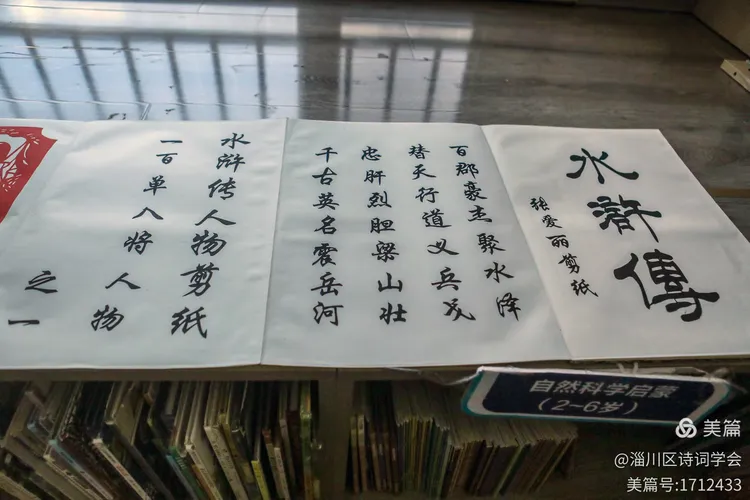 水滸傳
张爱丽剪纸
百郡豪杰聚水泽
替天行道义兵
忠肝烈胆梁山壮
千古英名震岳河
水浒传人物剪纸
一百单八将人物
之一
自然科学启蒙
（2~6岁）
美篇
@淄川区诗词学会
美篇号:1712433